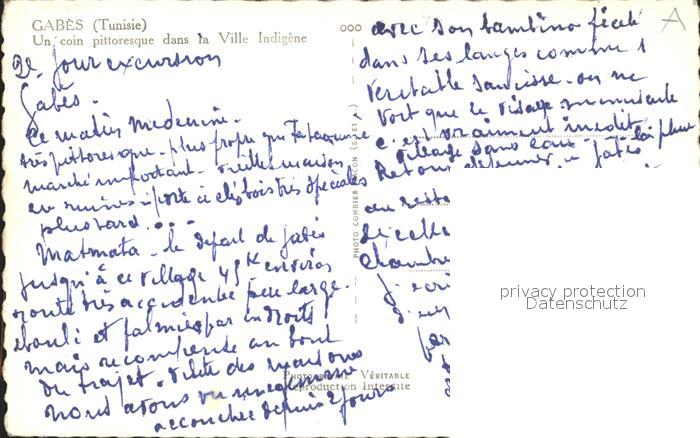 GABÈS (Tunisie)
Un coin pittoresque dans la Ville Indigène
2e jour excursion
Gabès.
Ce matin Medenine.
très pittoresque - plus propre que
marché important - vieille maison
en ruines - porte à clés bois très spéciales
plus tard...
Matmata - le départ de Gabès
jusqu'à ce village 45 k environ
route très accidentée peu large.
éboulis et palmiers par endroits
mais recompense au bout
du trajet - visite des maisons
nous avons vu une femme
accouchée depuis 2 jours
avec son bambino ficelé
dans ses langes comme 1
véritable saucisse - on ne
voit que le visage
c'est vraiment inédit
village sans eau - la pluie
Retour déjeuner à Gabès
au
de cette
chambre
j'
PHOTO COMBIER MACON
PHOTOGRAPHIE VÉRITABLE
Reproduction Interdite
privacy protection
Datenschutz